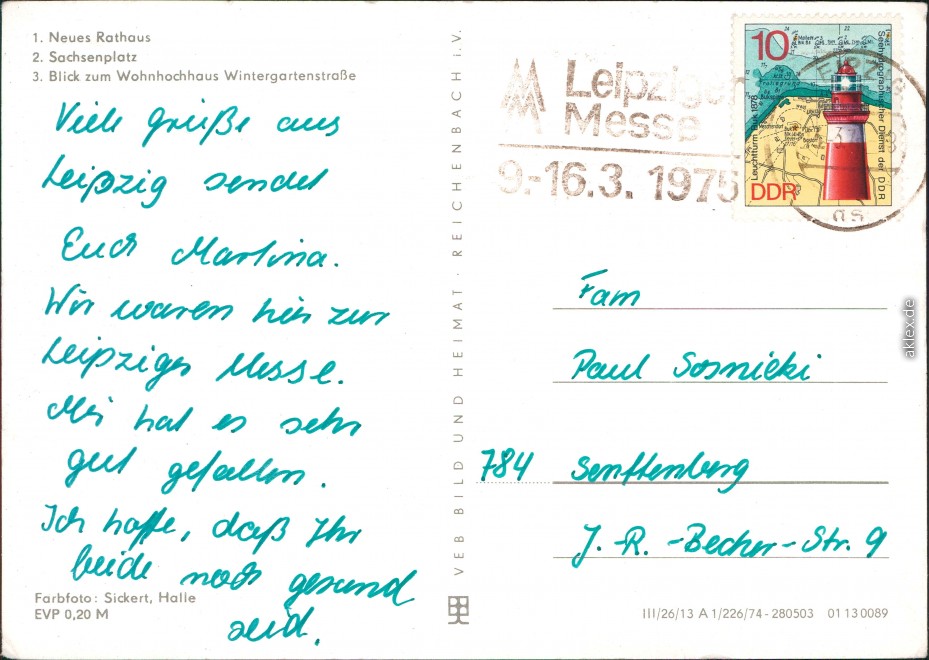 1. Neues Rathaus
2. Sachsenplatz
3. Blick zum Wohnhochhaus Wintergartenstraße
Viele Grüße aus
Leipzig sendet
Euch Martina.
Wir waren hier zur
Leipziger Messe.
Mir hat es sehr
gut gefallen.
Ich hoffe, daß Ihr
beide noch gesund
seid.
Farbfoto: Sickert, Halle
EVP 0,20 M
VEB BILD UND HEIMAT · REICHENBACH i. V.
Leipziger
Messe
9.-16.3. 1975
10
Leuchtturm Buk 1878
Seehydrographischer Dienst der DDR
DDR
Fam
Paul Sosnicki
784 Senftenberg
J. R. -Becher-Str. 9
III/26/13 A 1/226/74 - 280503 01 13 0089
aklex.de